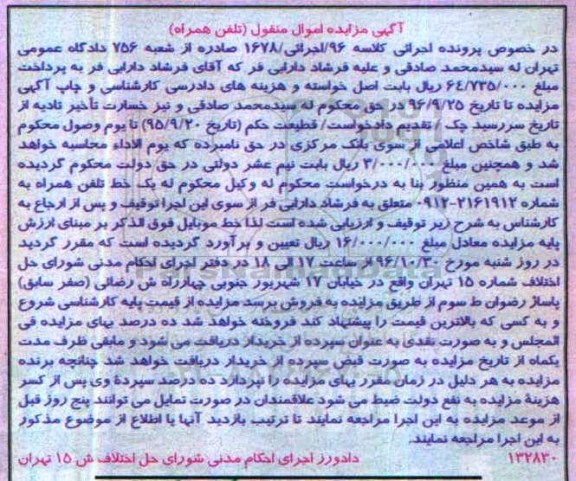 آگهی مزایده اموال منقول (تلفن همراه)
در خصوص پرونده اجرائی کلاسه ۹۶/اجرائی/۱۶۷۸ صادره از شعبه ۷۵۶ دادگاه عمومی
تهران له سیدمحمد صادقی و علیه فرشاد دارابی فر که آقای فرشاد دارابی فر به پرداخت
مبلغ ۶۴/۷۳۵/۰۰۰ ریال بابت اصل خواسته و هزینه های دادرسی کارشناسی و چاپ آگهی
مزایده تا تاریخ ۹۶/۹/۲۵ در حق محکوم له سیدمحمد صادقی و نیز خسارت تأخیر تادیه از
تاریخ سررسید چک / تقدیم دادخواست/ قطعیت حکم (تاریخ ۹۵/۹/۲۰) تا یوم وصول محکوم
به طبق شاخص اعلامی از سوی بانک مرکزی در حق نامبرده که یوم الاداء محاسبه خواهد
شد و همچنین مبلغ ۳/۰۰۰/۰۰۰ ریال بابت نیم عشر دولتی در حق دولت محکوم گردیده
است به همین منظور بنا به درخواست محکوم له وکیل محکوم له یک خط تلفن همراه به
شماره ۲۱۶۱۹۱۲-۰۹۱۲ متعلق به فرشاد دارابی فر از سوی این اجرا توقیف و پس از ارجاع به
کارشناس به شرح زیر توقیف و ارزیابی شده است لذا خط موبایل فوق الذکر بر مبنای ارزش
پایه مزایده معادل مبلغ ۱۶/۰۰۰/۰۰۰ ریال تعیین و برآورد گردیده است که مقرر گردید
در روز شنبه مورخ ۹۶/۱۰/۳۰ از ساعت ۱۷ الی ۱۸ در دفتر اجرای احکام مدنی شورای حل
اختلاف شماره ۱۵ تهران واقع در خیابان ۱۷ شهریور جنوبی چهارراه ش رضائی (صفر سابق)
پاساژ رضوان ط سوم از طریق مزایده به فروش برسد مزایده از قیمت پایه کارشناسی شروع
و به کسی که بالاترین قیمت را پیشنهاد کند فروخته خواهد شد ده درصد بهای مزایده فی
المجلس و به صورت نقدی به عنوان سپرده از خریدار دریافت می شود و مابقی ظرف مدت
یکماه از تاریخ مزایده به صورت قبض سپرده از خریدار دریافت خواهد شد چنانچه برنده
مزایده به هر دلیل در زمان مقرر بهای مزایده را نپردازد ده درصد سپردهٔ وی پس از کسر
هزینهٔ مزایده به نفع دولت ضبط می شود علاقمندان در صورت تمایل می توانند پنج روز قبل
از موعد مزایده به این اجرا مراجعه نمایند تا ترتیب بازدید آنها یا اطلاع از موضوع مذکور
به این اجرا مراجعه نمایند.
۱۳۲۸۳۰ دادورز اجرای احکام مدنی شورای حل اختلاف ش ۱۵ تهران